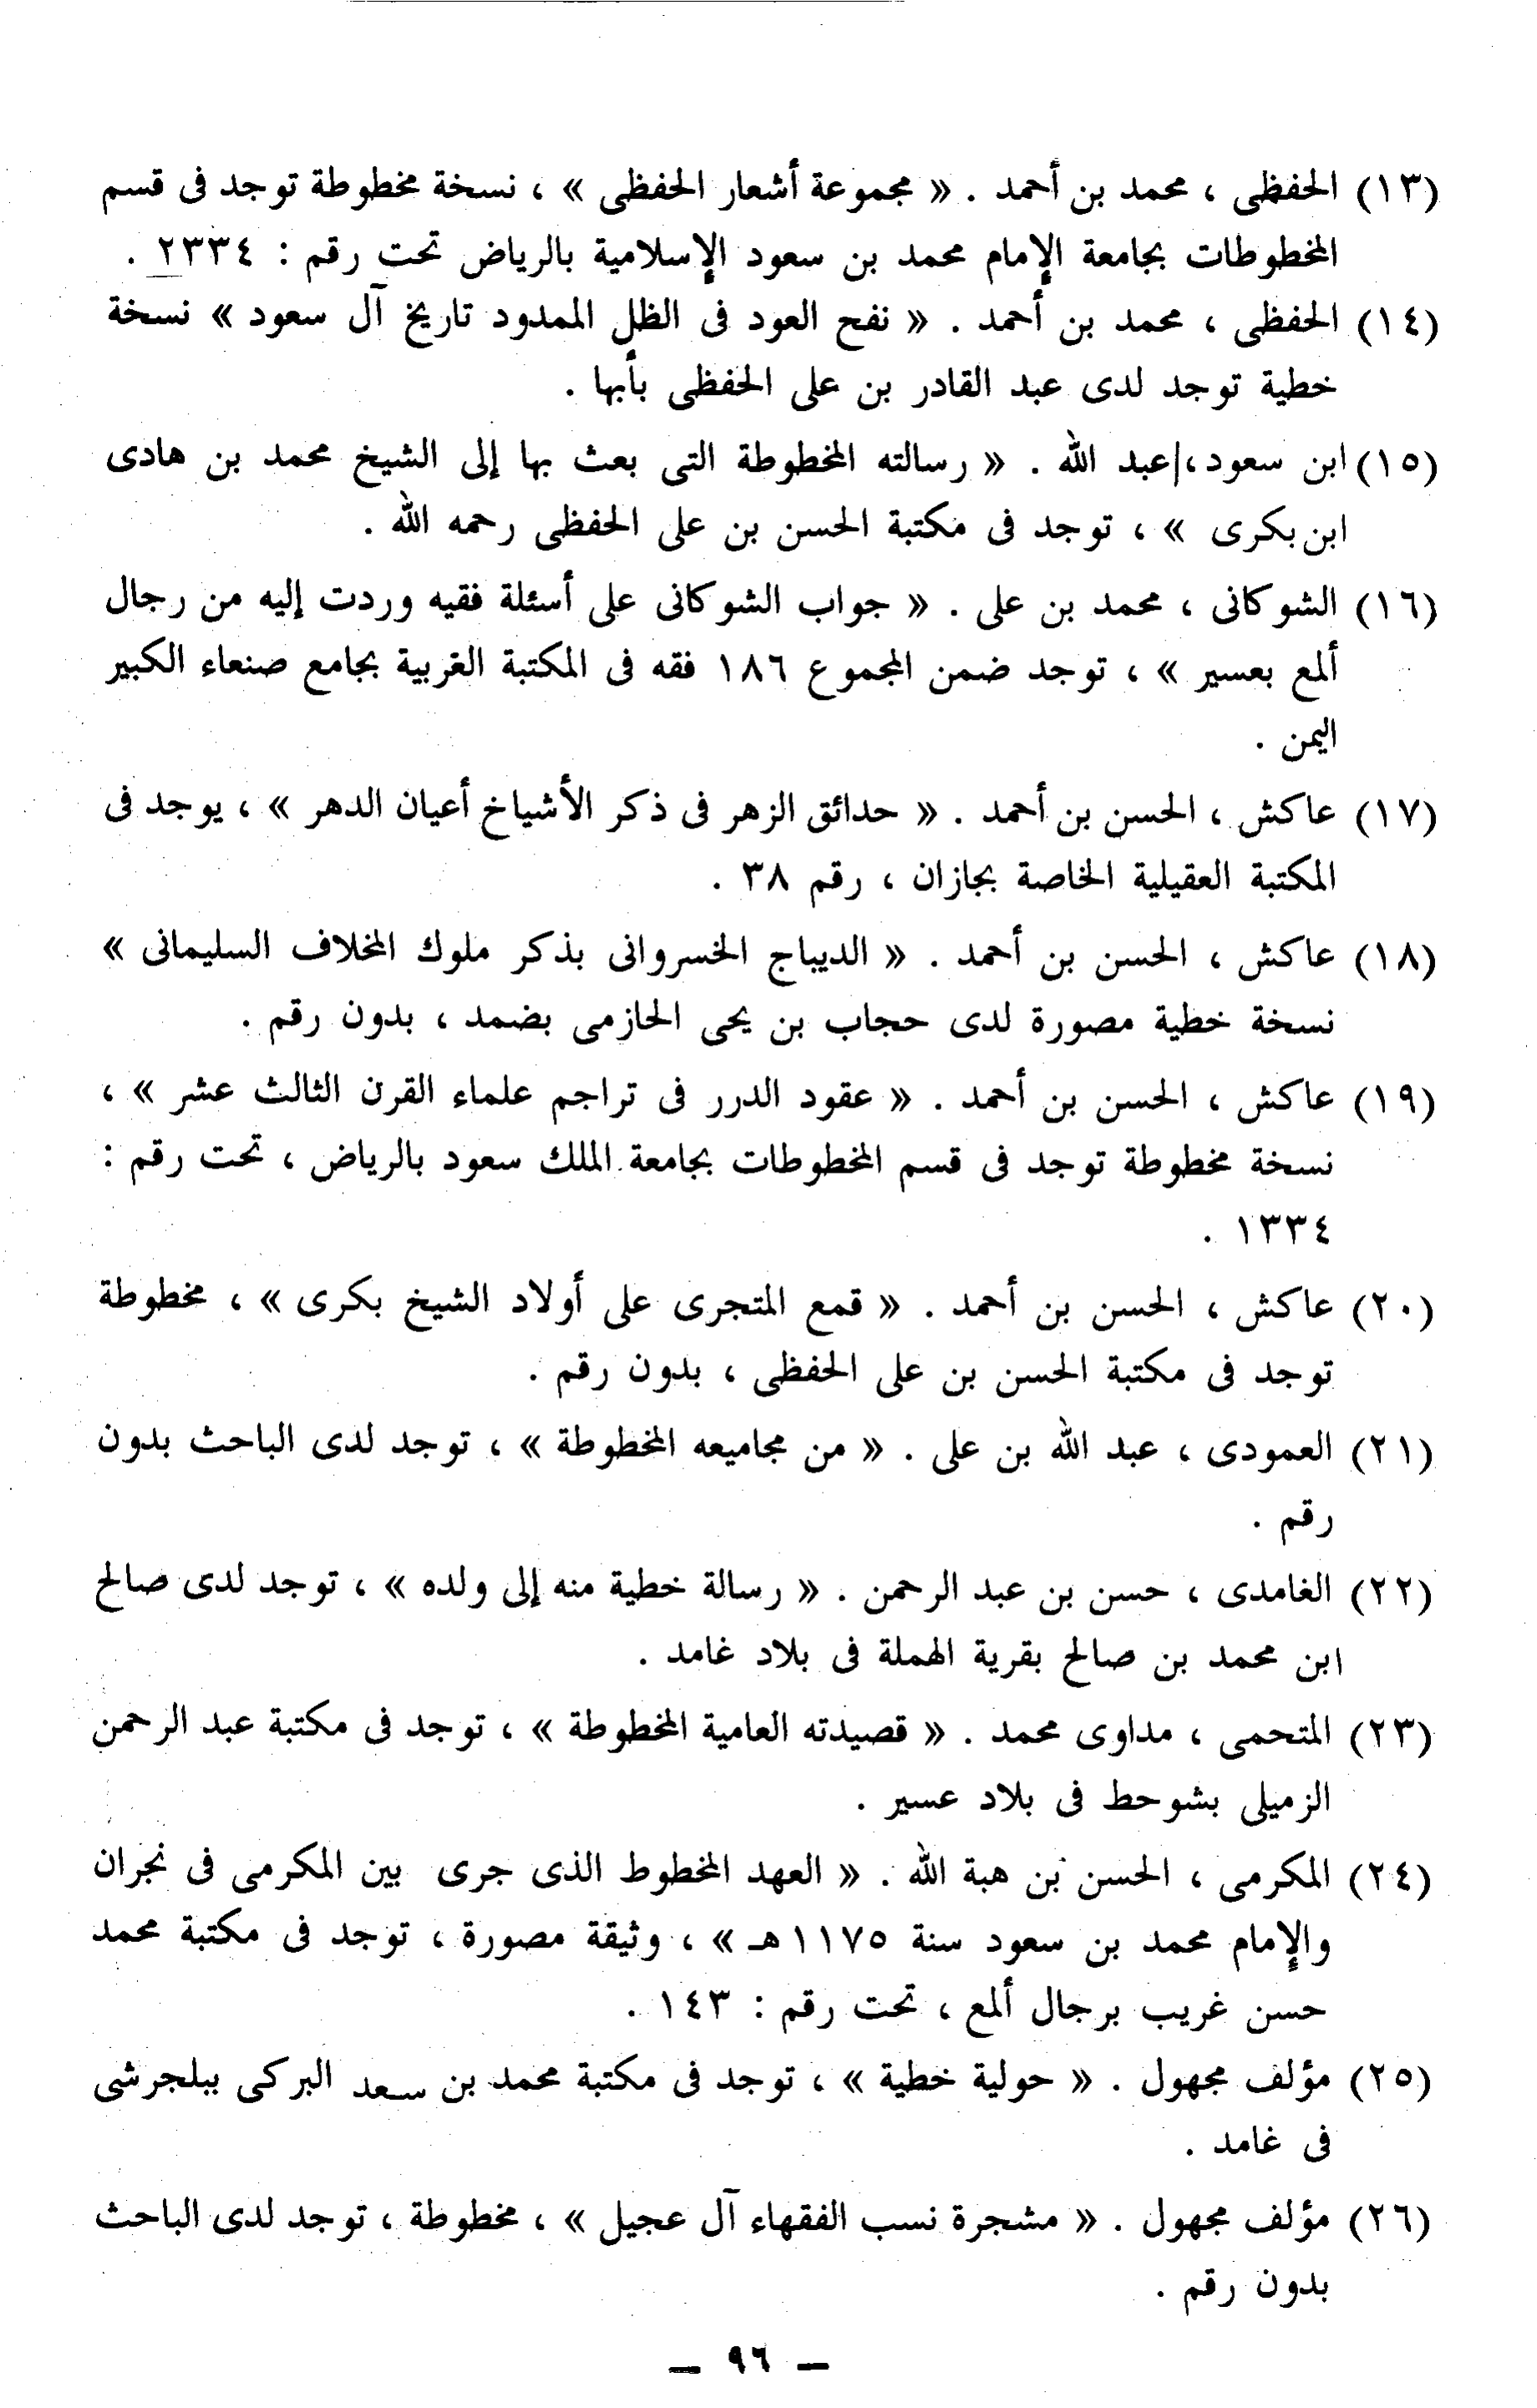 (١٣) الحفظى ، محمد بن أحمد . « مجموعة أشعار الحفظى » ، نسخة مخطوطة توجد فى قسم
المخطوطات بجامعة الإمام محمد بن سعود الإسلامية بالرياض تحت رقم : ٢٣٣٤ .
(١٤) الحفظى ، محمد بن أحمد . « نفح العود فى الظل الممدود تاريخ آل سعود » نسخة
خطية توجد لدى عبد القادر بن على الحفظى بأبها .
(١٥) ابن سعود ، عبد الله . « رسالته المخطوطة التى بعث بها إلى الشيخ محمد بن هادى
ابن بكرى » ، توجد فى مكتبة الحسن بن على الحفظى رحمه الله .
(١٦) الشوكانى ، محمد بن على . « جواب الشوكانى على أسئلة فقيه وردت إليه من رجال
ألمع بعسير » ، توجد ضمن المجموع ١٨٦ فقه فى المكتبة الغربية بجامع صنعاء الكبير
اليمن .
(١٧) عاكش ، الحسن بن أحمد . « حدائق الزهر فى ذكر الأشياخ أعيان الدهر » ، يوجد فى
المكتبة العقيلية الخاصة بجازان ، رقم ٣٨ .
(١٨) عاكش ، الحسن بن أحمد . « الديباج الخسروانى بذكر ملوك المخلاف السليمانى »
نسخة خطية مصورة لدى حجاب بن يحى الحازمى بضمد ، بدون رقم .
(١٩) عاكش ، الحسن بن أحمد . « عقود الدرر فى تراجم علماء القرن الثالث عشر » ،
نسخة مخطوطة توجد فى قسم المخطوطات بجامعة الملك سعود بالرياض ، تحت رقم :
١٣٣٤ .
(٢٠) عاكش ، الحسن بن أحمد . « قمع المتجرى على أولاد الشيخ بكرى » ، مخطوطة
توجد فى مكتبة الحسن بن على الحفظى ، بدون رقم .
(٢١) العمودى ، عبد الله بن على . « من مجاميعه المخطوطة » ، توجد لدى الباحث بدون
رقم .
(٢٢) الغامدى ، حسن بن عبد الرحمن . « رسالة خطية منه إلى ولده » ، توجد لدى صالح
ابن محمد بن صالح بقرية الهملة فى بلاد غامد .
(٢٣) المتحمى ، مداوى محمد . « قصيدته العامية المخطوطة » ، توجد فى مكتبة عبد الرحمن
الزميلى بشوحط فى بلاد عسير .
(٢٤) المكرمى ، الحسن بن هبة الله . « العهد المخطوط الذى جرى بين المكرمى فى نجران
والإمام محمد بن سعود سنة ١١٧٥هـ » ، وثيقة مصورة ، توجد فى مكتبة محمد
حسن غريب برجال ألمع ، تحت رقم : ١٤٣ .
(٢٥) مؤلف مجهول . « حولية خطية » ، توجد فى مكتبة محمد بن سعد البركى ببلجرشى
فى غامد .
(٢٦) مؤلف مجهول . « مشجرة نسب الفقهاء آل عجيل » ، مخطوطة ، توجد لدى الباحث
بدون رقم .
— ٩٦ —